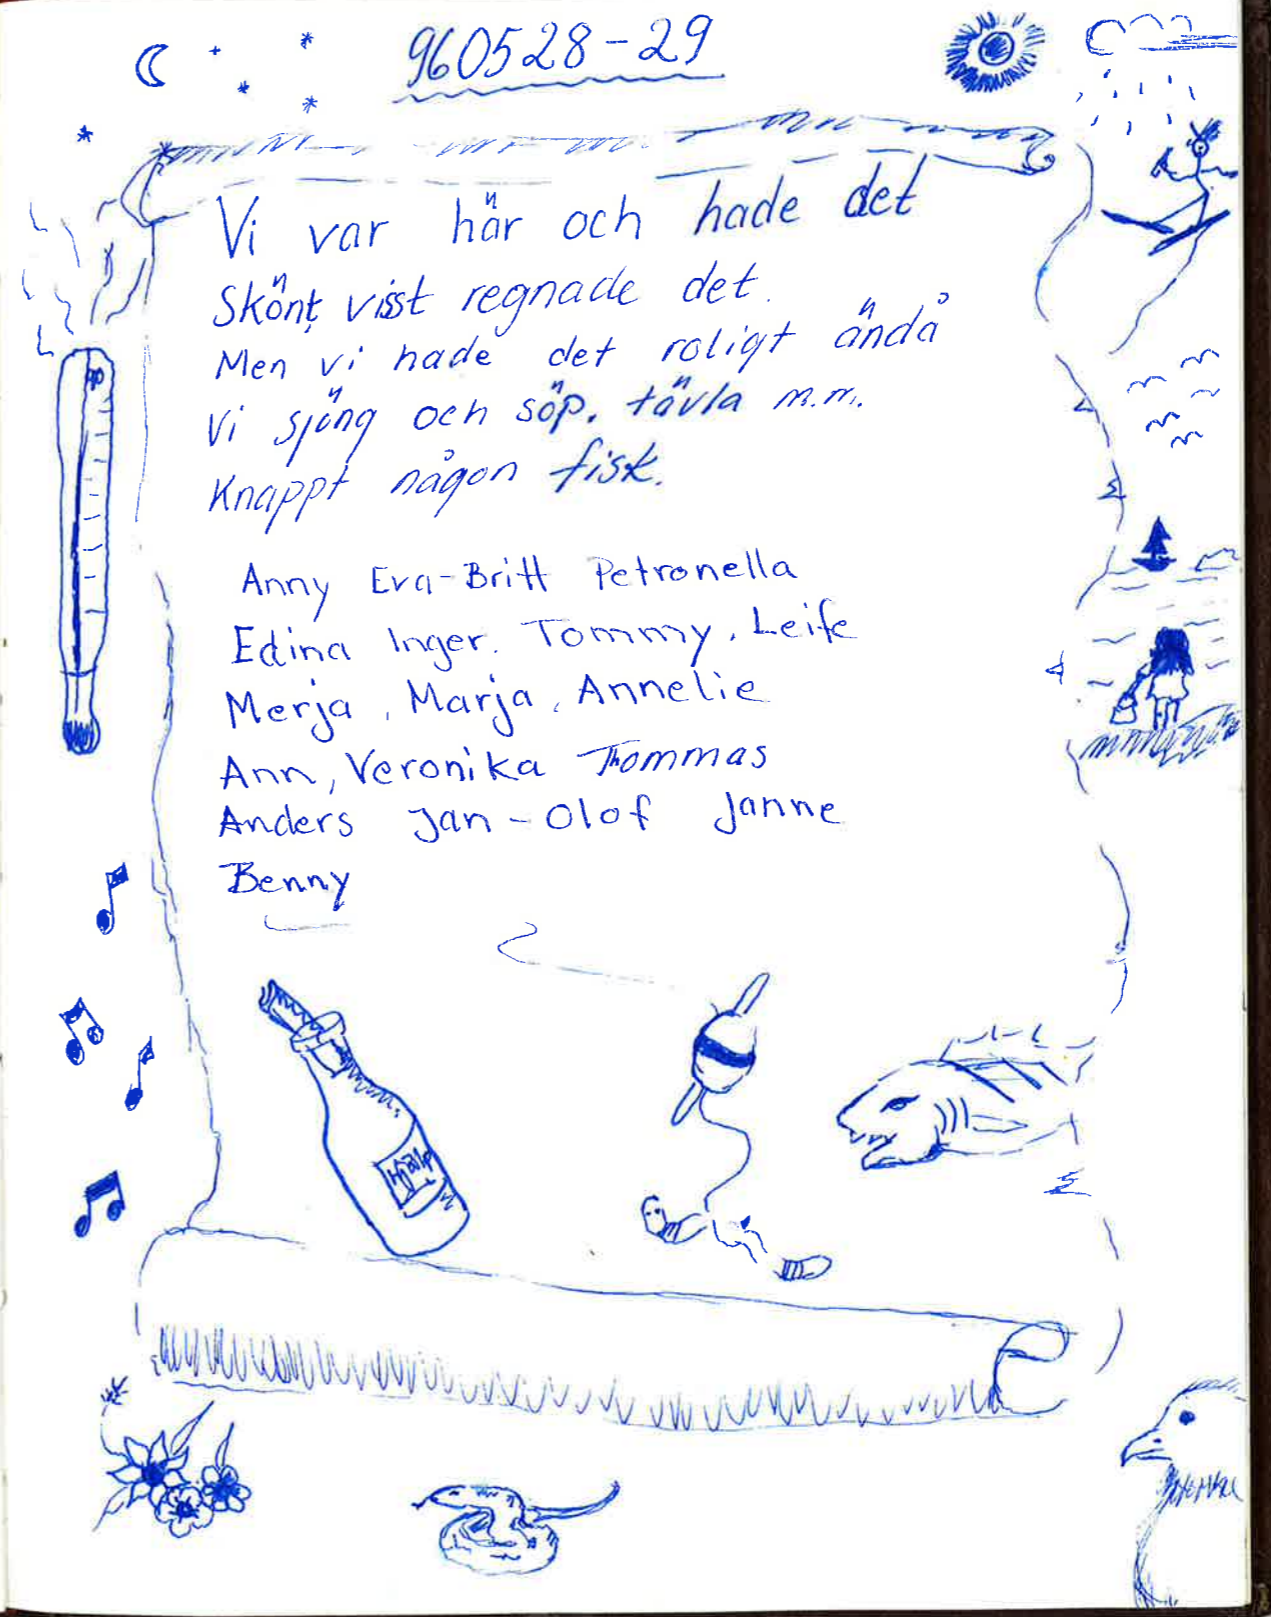 960528-29
Vi var här och hade det
Skönt, visst regnade det.
Men vi hade det roligt ändå
Vi sjöng och söp. tävla m.m.
Knappt någon fisk.
Anny Eva-Britt Petronella
Edina Inger. Tommy, Leife
Merja, Marja, Annelie
Ann, Veronika Thommas
Anders Jan-Olof Janne
Benny
Hjälp